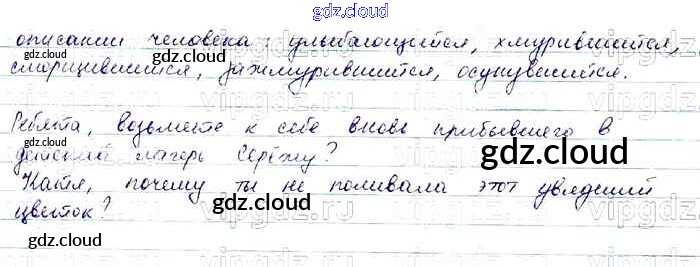 gdz.cloud
описании человека: улыбающийся, хмурившийся,
сморщившийся, зажмурившийся, осунувшийся.
gdz.cloud
Ребята, возьмете к себе вновь прибывшего в
gdz.cloud
детский лагерь Серёжу?
gdz.cloud
Катя, почему ты не поливала этот увядший
gdz.cloud
цветок?
gdz.cloud
gdz.cloud